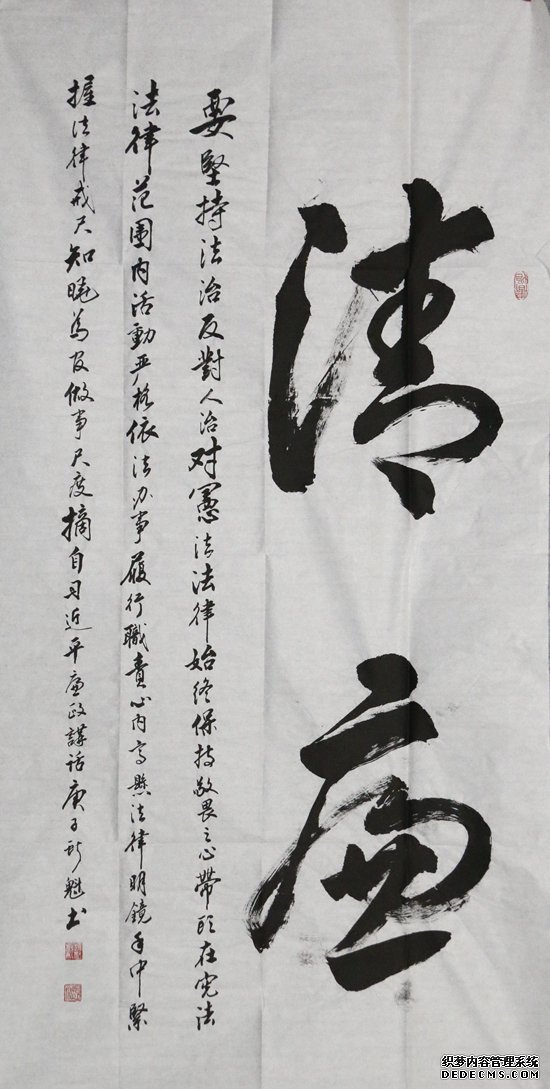 清廉
要堅持法治反對人治对憲法法律始终保持敬畏之心帶頭在宪法
法律范围内活動严格依法办事履行職責心内高懸法律明鏡手中緊
握法律戒尺知曉為官做事尺度摘自习近平廉政講话庚子新魁书
织梦内容管理系统
DEDECMS.COM